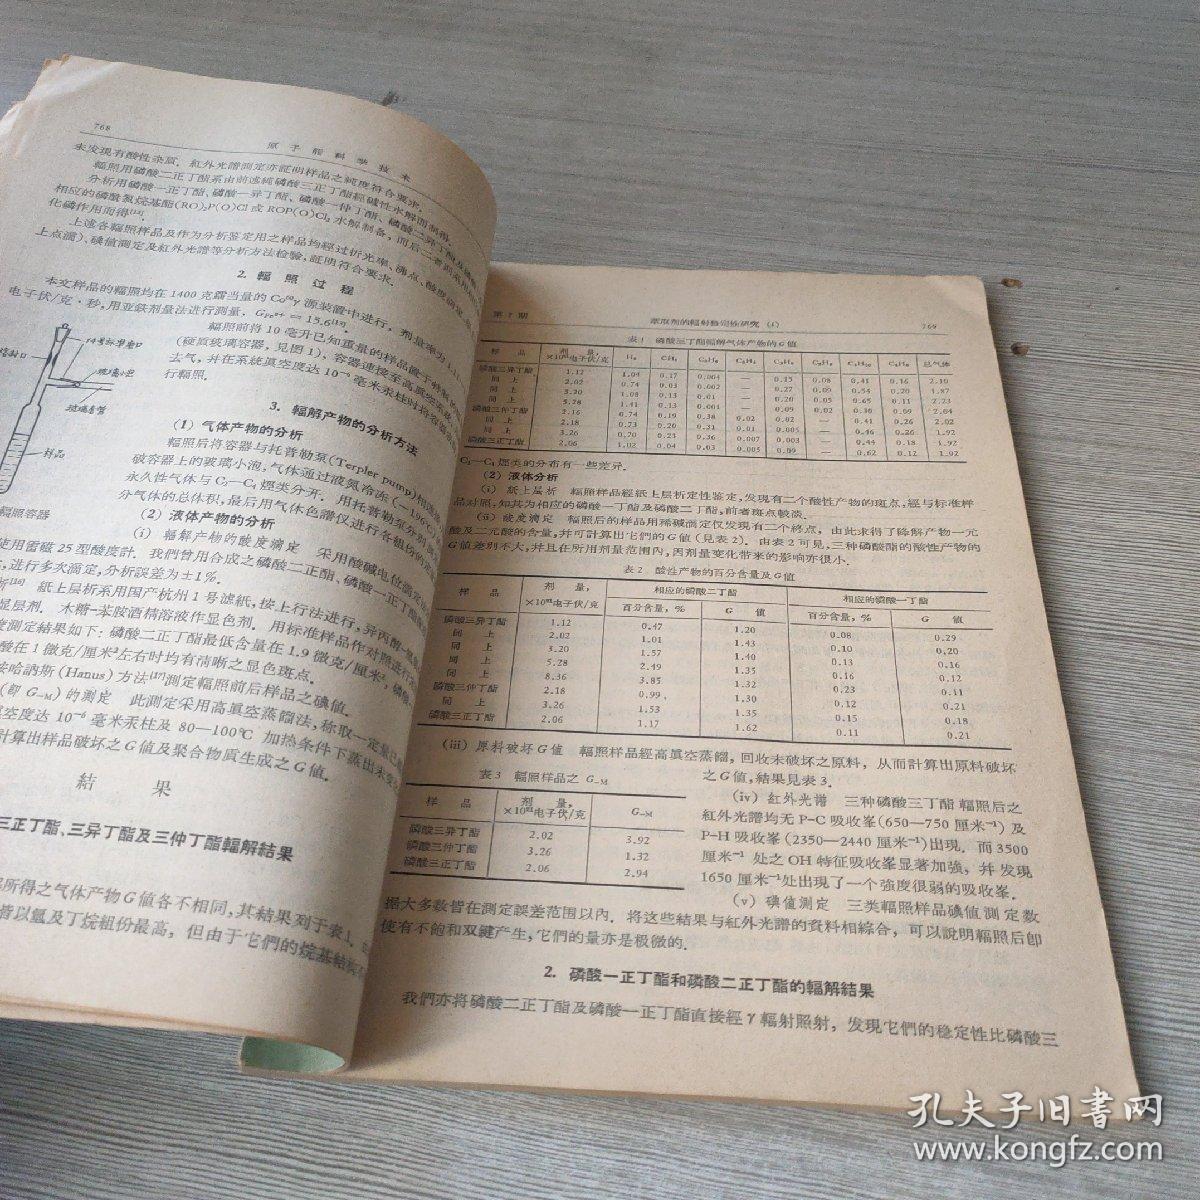 768
原子能科学技术
未发现有酸性杂质．紅外光譜測定亦証明样品之純度符合要求．
輻照用磷酸二正丁酯系由前述純磷酸三正丁酯經碱性水解而制得．
分析用磷酸一正丁酯、磷酸一异丁酯、磷酸一仲丁酯、磷酸二异丁酯及磷酸
相应的磷酰氯烷基酯(RO)₂P(O)Cl 或 ROP(O)Cl₂ 水解制备，而后二者則采用
化磷作用而得
上述各輻照样品及作为分析鉴定用之样品均經过折光率、沸点、酸度
上点滴)、碘值測定及紅外光譜等分析方法检驗，証明符合要求．
2. 輻照过程
本文样品的輻照均在 1400 克鐳当量的 Co⁶⁰γ 源装置中进行，剂量率为
电子伏/克·秒，用亚鉄剂量法进行測量．
輻照前将 10 毫升已知重量的样品置于特制的
(硬质玻璃容器，見图 1)，容器連接至高眞空系統，
去气，并在系統真空度达 10⁻⁶ 毫米汞柱时将容器
行輻照．
14号标准磨口
玻璃小泡
玻璃套管
样品
輻照容器
3. 輻解产物的分析方法
(1) 气体产物的分析
輻照后将容器与托普勒泵(Terpler pump)相連
破容器上的玻璃小泡，气体通过液氮冷冻(−196℃)
永久性气体与 C₂—C₄ 烴类分开．用托普勒泵分別測
分气体的总体积，最后用气体色譜仪进行各組份的
(2) 液体产物的分析
(i) 輻解产物的酸度滴定　采用酸碱电位滴定
使用雷磁 25 型酸度計．我們曾用合成之磷酸二正酯、磷酸一正丁酯
，进行多次滴定，分析誤差为±1%．
紙上层析系用国产杭州 1 号滤紙，按上行法进行，异丙醇—氨
显层剂．木糖-苯胺酒精溶液作显色剂．用标准样品作对照进行
度測定結果如下：磷酸二正丁酯最低含量在 1.9 微克/厘米²，磷酸
酸在 1 微克/厘米² 左右时均有清晰之显色斑点．
按哈訥斯(Hanus)方法[17]測定輻照前后样品之碘值．
(即 G₋M)的測定　此測定采用高眞空蒸餾法，称取一定量
空度达 10⁻⁶ 毫米汞柱及 80—100℃ 加热条件下蒸出未变
計算出样品破坏之 G 值及聚合物质生成之 G 值．
結　果
三正丁酯、三异丁酯及三仲丁酯輻解結果
所得之气体产物 G 值各不相同，其結果列于表 1．
皆以氫及丁烷組份最高，但由于它們的烷基結构
第 7 期　萃取剂的輻射稳定性研究 (I)　769
表 1　磷酸三丁酯輻解气体产物的 G 值
样　品　剂　量，×10²¹电子伏/克　H₂　CH₄　C₂H₆　C₂H₄　C₃H₈　C₃H₆　C₄H₁₀　C₄H₈　总气体
磷酸三异丁酯　1.12　1.04　0.17　0.004　—　0.15　0.08　0.41　0.16　2.10
同　上　2.02　0.74　0.03　0.002　—　0.27　0.09　0.54　0.20　1.87
同　上　3.20　1.08　0.13　0.01　—　0.20　0.05　0.65　0.11　2.23
同　上　5.28　1.41　0.13　0.001　—　0.09　0.02　0.30　0.09　2.04
磷酸三仲丁酯　2.16　0.74　0.19　0.38　0.02　0.02　—　0.41　0.26　2.02
同　上　3.26　0.70　0.23　0.36　0.007　0.003　—　0.44　0.18　1.92
磷酸三正丁酯　2.06　1.02　0.04　0.03　0.005　0.09　—　0.62　0.12　1.92
C₂—C₄ 烴类的分布有一些差异．
(2) 液体分析
(i) 紙上层析　輻照样品經紙上层析定性鉴定，发現有二个酸性产物的斑点，經与标准样
品对照，知其为相应的磷酸一丁酯及磷酸二丁酯，前者斑点較淡．
(ii) 酸度滴定　輻照后的样品用稀碱滴定仅发現有二个終点，由此求得了降解产物一元
酸及二元酸的含量，并可計算出它們的 G 值（見表 2）．由表 2 可見，三种磷酸酯的酸性产物的
G 值差別不大，并且在所用剂量范围內，因剂量变化带来的影响亦很小．
表 2　酸性产物的百分含量及 G 值
样　品　剂　量，×10²¹电子伏/克　相应的磷酸二丁酯　相应的磷酸一丁酯
百分含量，%　G　值　百分含量，%　G　值
磷酸三异丁酯　1.12　0.47　1.20　0.08　0.29
同　上　2.02　1.01　1.43　0.10　0.20
同　上　3.20　1.57　1.40　0.13　0.16
同　上　5.28　2.49　1.35　0.16　0.12
同　上　8.36　3.85　1.32　0.23　0.11
磷酸三仲丁酯　2.18　0.99　1.30　0.12　0.21
同　上　3.26　1.53　1.35　0.15　0.18
磷酸三正丁酯　2.06　1.17　1.62　0.11　0.21
(iii) 原料破坏 G 值　輻照样品經高眞空蒸餾，回收未破坏之原料，从而計算出原料破坏
之 G 值，結果見表 3．
表 3　輻照样品之 G₋M
样　品　剂　量，×10²¹电子伏/克　G₋M
磷酸三异丁酯　2.02　3.92
磷酸三仲丁酯　3.26　1.32
磷酸三正丁酯　2.06　2.94
(iv) 紅外光譜　三种磷酸三丁酯輻照后之
紅外光譜均无 P-C 吸收峯(650—750 厘米⁻¹)及
P-H 吸收峯(2350—2440 厘米⁻¹)出現．而 3500
厘米⁻¹ 处之 OH 特征吸收峯显著加強，并发現
1650 厘米⁻¹处出現了一个強度很弱的吸收峯．
(v) 碘值測定　三类輻照样品碘值測定数
据大多数皆在測定誤差范围以內．将这些結果与紅外光譜的資料相綜合，可以說明輻照后卽
使有不飽和双鍵产生，它們的量亦是极微的．
2. 磷酸一正丁酯和磷酸二正丁酯的輻解結果
我們亦将磷酸二正丁酯及磷酸一正丁酯直接經 γ 輻射照射，发現它們的稳定性比磷酸三
孔夫子旧书网
www.kongfz.com